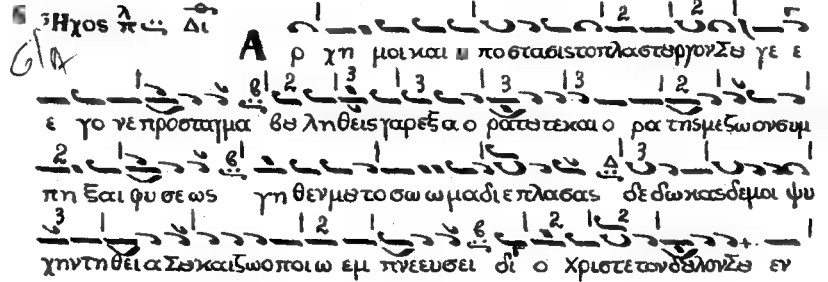 Ἦχος λ π Δι
Α ρ χη μοι και υ ποστασις το πλαστȣργον Σȣ γε ε
ε γο νε προσταγμα βȣ ληθεις γαρ εξ α ο ρατȣ τε και ο ρα της με ζωον συμ
πη ξαι φυ σεως γηθεν μȣ το σω ωμα διεπλασας δεδωκας δε μοι ψυ
χην τη θει α Σȣ και ζωοποιω εμ πνεευσει δι ο Χριστε τον δȣλον Σȣ εν